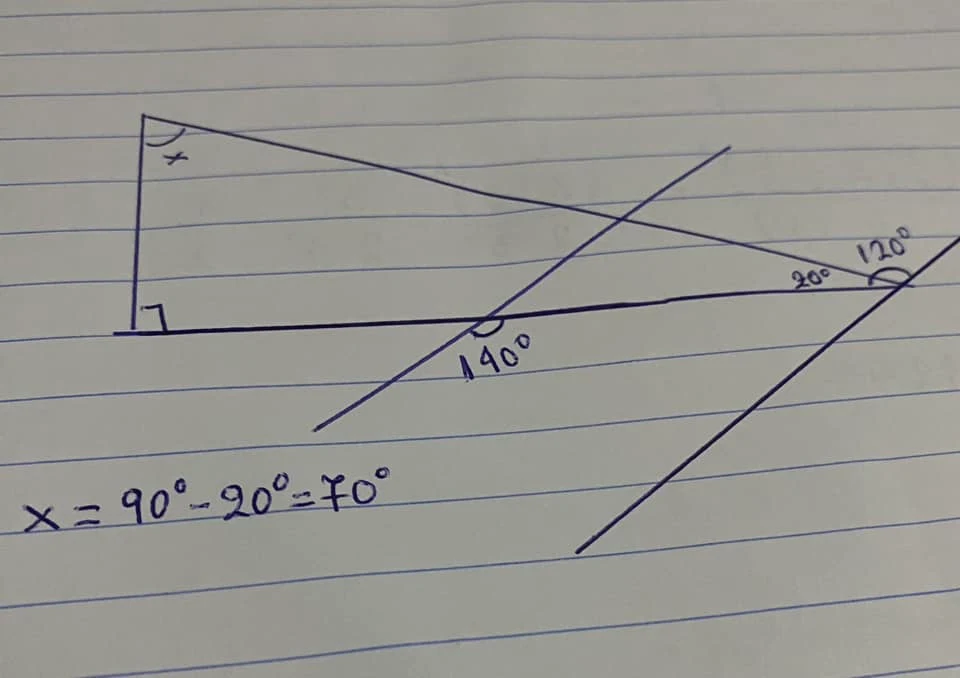 x
120°
20°
140°
x = 90° - 20° = 70°